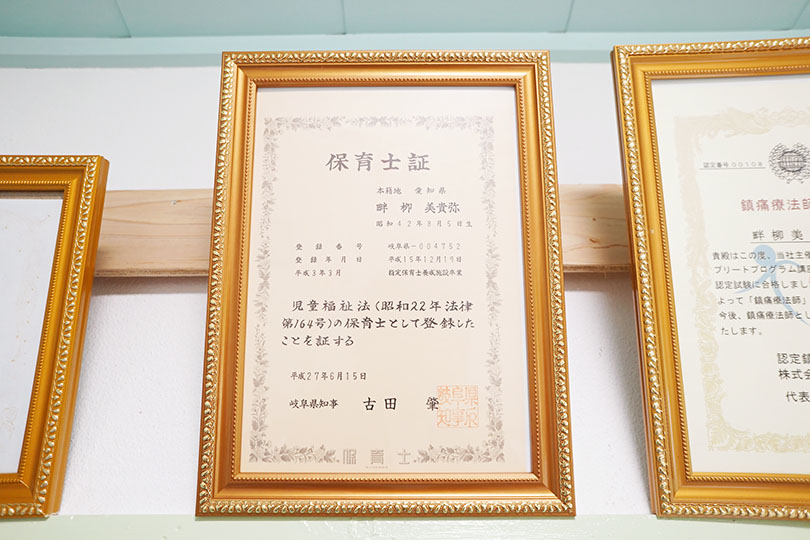 保育士証
本籍地 愛知県
畔柳 美貴弥
昭和42年8月5日生
登録番号 岐阜県-004752
登録年月日 平成15年12月19日
平成3年3月 指定保育士養成施設卒業
児童福祉法(昭和22年法律
第164号)の保育士として登録した
ことを証する
平成27年6月15日
岐阜県知事 古田 肇
岐阜県
知事印
保育士
認定番号00108
鎮痛療法師
畔柳美
貴殿はこの度、当社主催
ブリートプログラム講
認定試験に合格しまし
よって「鎮痛療法師」
今後、鎮痛療法師とし
たします。
認定鎮
株式会
代表